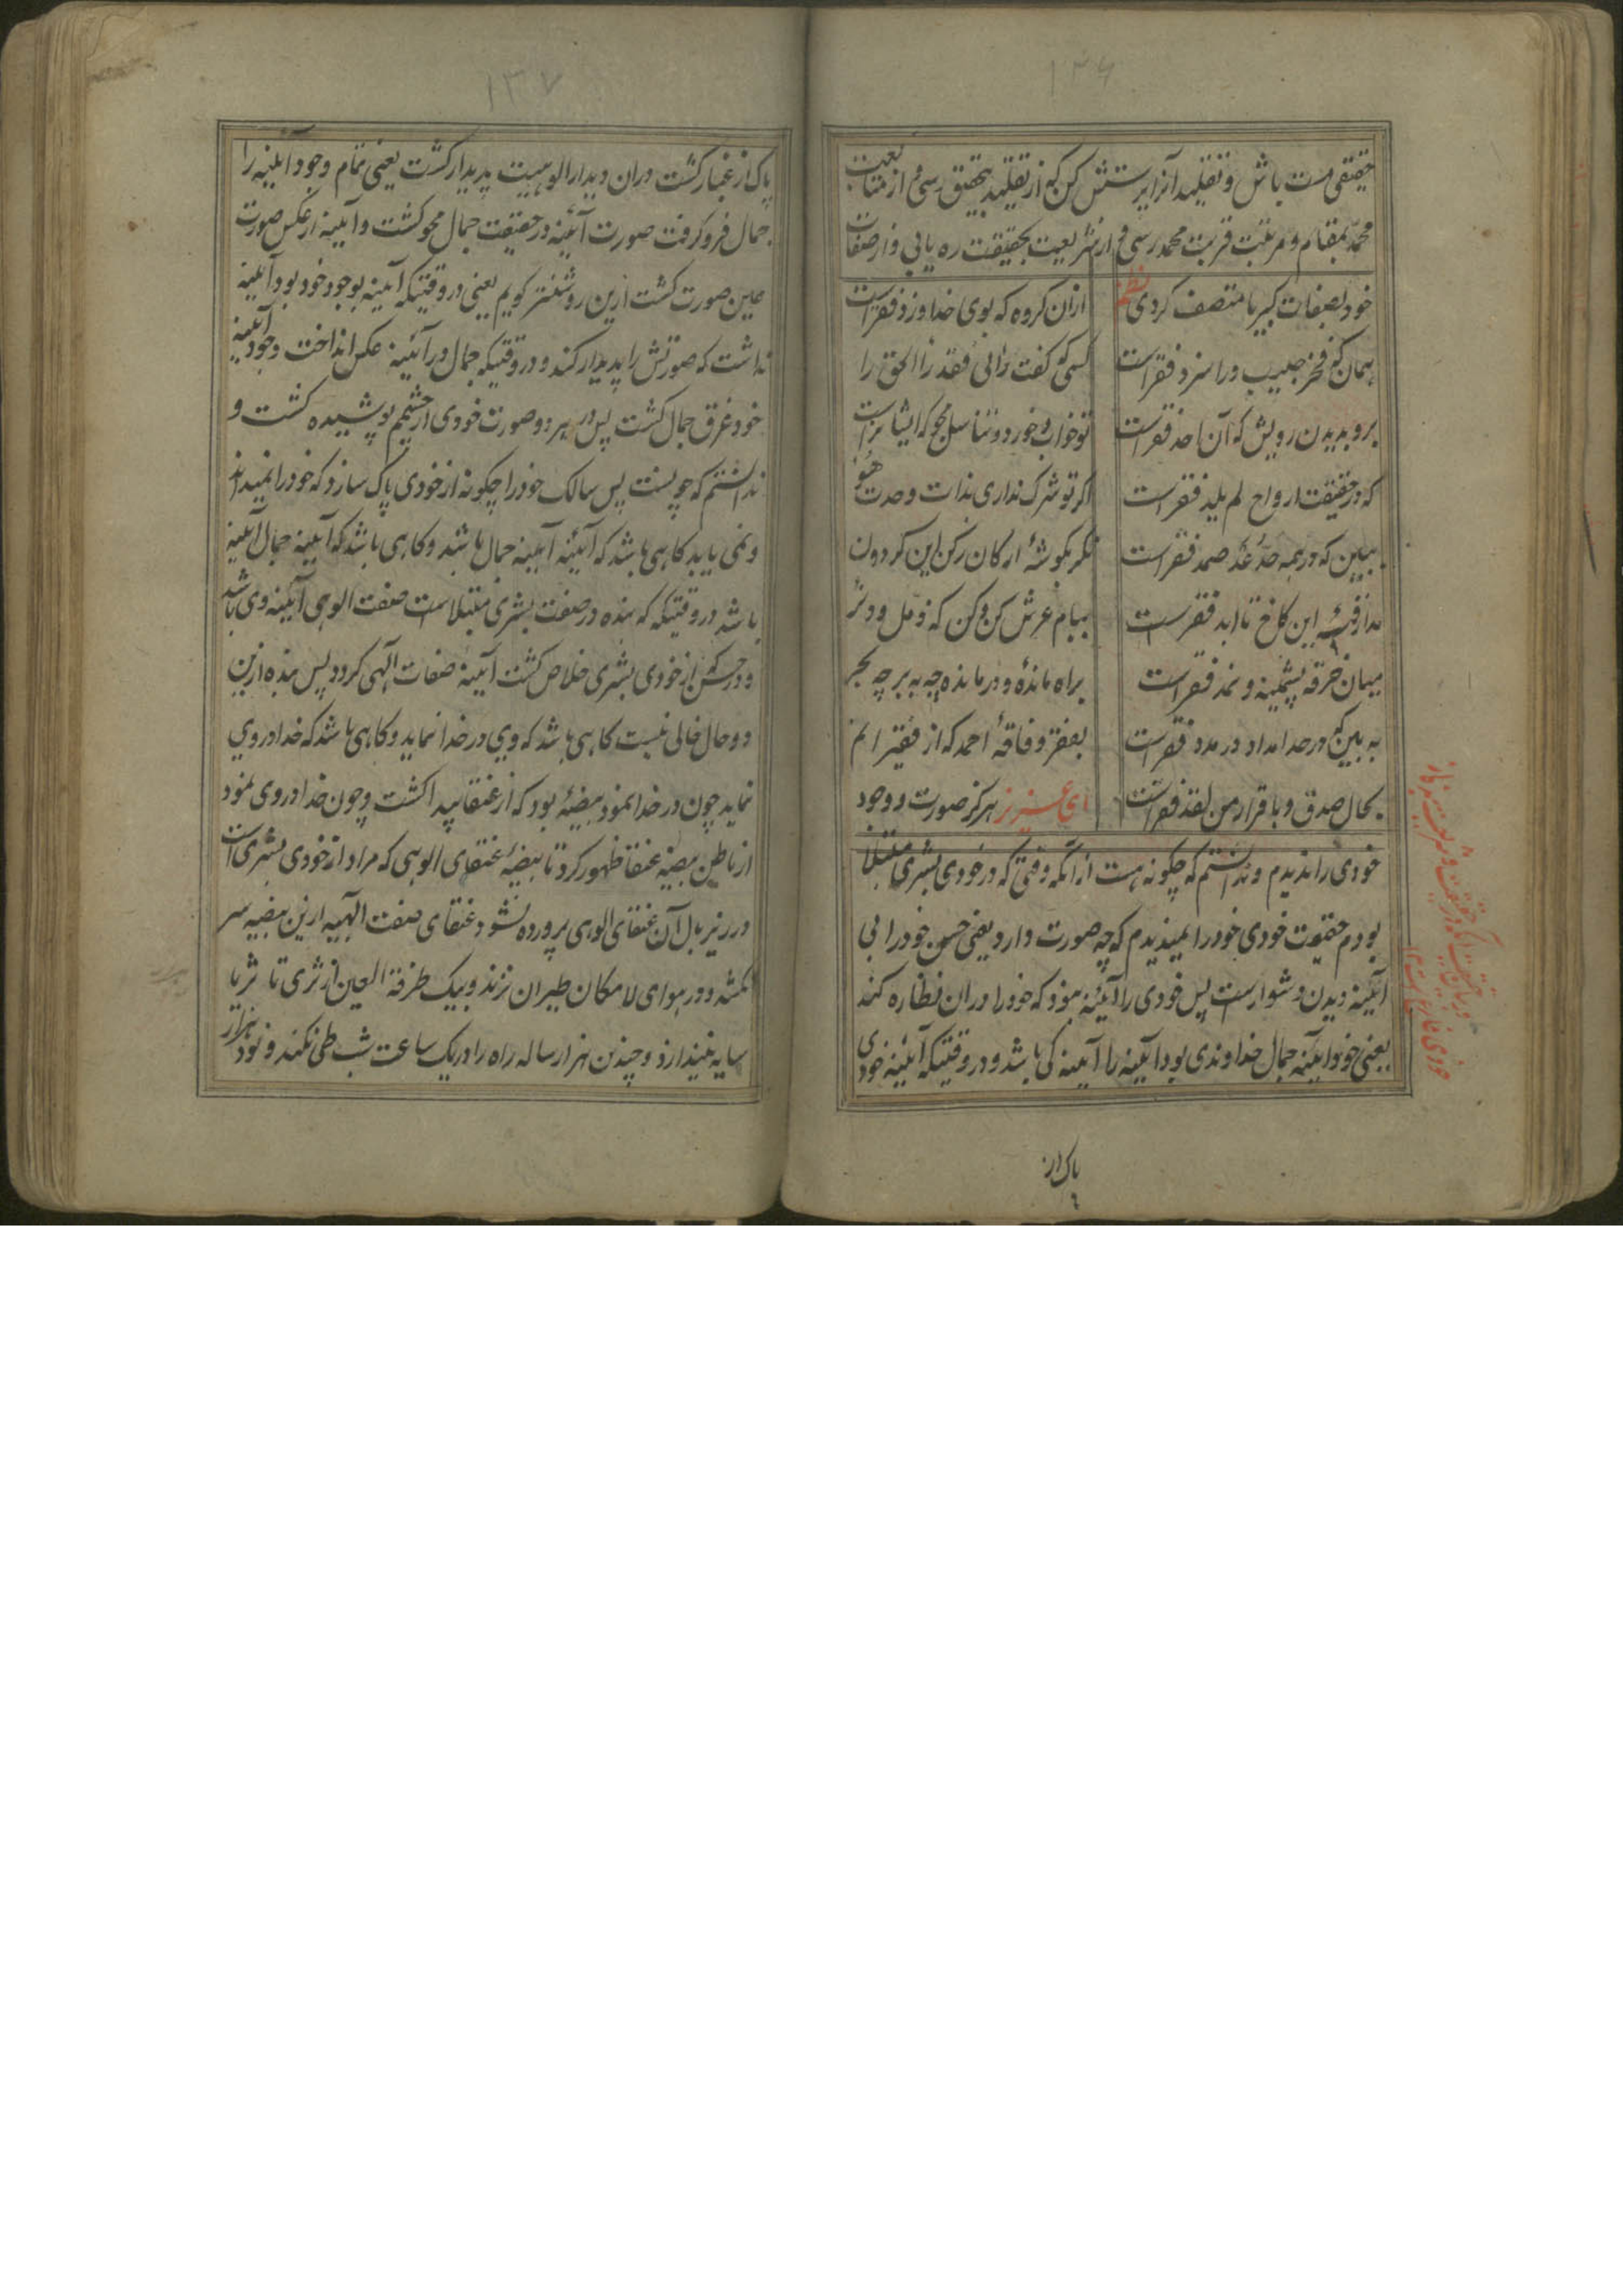 ۱۳۶
حقیقی مست باش و تقلید آنرا پرستش کن که از تقلید بتحقیق رسی و از متابعت
محمد بمقام و مرتبت قربت محمد رسی و از شریعت بحقیقت ره یابی و از صفات
خود بصفات کبریا متصف کردی نظم
ازان کروه که بوی خدا وزد فقر است
همان که فخر حبیب ورا سزد فقر است
کسی که گفت رانی فقد را الحق را
برو بدیدن رویش که آن احد فقر است
تو خواب و خورد و تناسل مجو که اینها تراست
که در حقیقت ارواح لم یلد فقر است
اکر تو شرک نداری بذات وحدت هو
ببین که در همه صد عد صمد فقر است
نکر بکوشهٔ ارکان رکن این کردون
این کاخ تا ابد فقر است
ببام عرش کن و کن که
میان خرقه پشمینه و نمد فقر است
براه مانده و درمانده چه به بر چه بحر
به بین که در صد امداد در مدد فقر است
بفقر و فاقهٔ احمد که از فقیرانم
بحال صدق و باقرار من لقد فقر است
ای عزیز هرکز صورت و وجود
خودی را ندیدم و ندانستم که چکونه هست از آنکه وقتی که در خودی بشری مبتلا
بودم حقیقت خودی خود را نمیدیدم که چه صورت دارد یعنی حسن خود را بی
آیینه دیدن دشوار است پس خودی را آیینه نمود که خود را دران نظاره کند
یعنی خود آیینه جمال خداوندی بود آیینه را آیینه کی باشد و در وقتیکه آیینه خودی
پاک از
۱۳۷
پاک از غبار کشت دران دیدار الوهیت پدیدار کشت یعنی تمام وجود آیینه را
جمال فرو کرفت صورت آیینه در حقیقت جمال محو کشت و آیینه از عکس صورت
عین صورت کشت ازین روشنتر کویم یعنی در وقتیکه آیینه بوجود خود بود آیینه
نداشت که صورتش را پدیدار کند و در وقتیکه جمال در آیینه عکس انداخت وجود آیینه
خود غرق جمال کشت پس در هر دو صورت خودی از چشم پوشیده کشت و
ندانستم که چونست پس سالک خود را چکونه از خودی پاک سازد که خود را نمیداند
و نمی یابد کاهی باشد که آیینه آیینه جمال باشد و کاهی باشد که آیینه جمال آیینه
باشد در وقتیکه بنده در صفت بشری مبتلاست صفت الوهی آیینه وی باشد
و هر کس از خودی بشری خلاص کشت آیینه صفات الهی کردد پس بنده ازین
دو حال خالی نیست کاهی باشد که وی در خدا نماید و کاهی باشد که خدا در وی
نماید چون در خدا نمود بیضهٔ بود که از عنقا پیدا کشت و چون خدا در وی نمود
از باطن بیضه عنقا ظهور کرد تا بیضهٔ عنقای الوهی که مراد از خودی بشری است
در زیر بال آن عنقای الوهی پرورده نشود عنقای صفت الهیه ازین بیضه سر
نکشد و در هوای لامکان طیران نزند و بیک طرفة العین از ثری تا ثریا
سایه نیندازد و چندین هزار ساله راه را در یک ساعت شب طی نکند و نود هزار